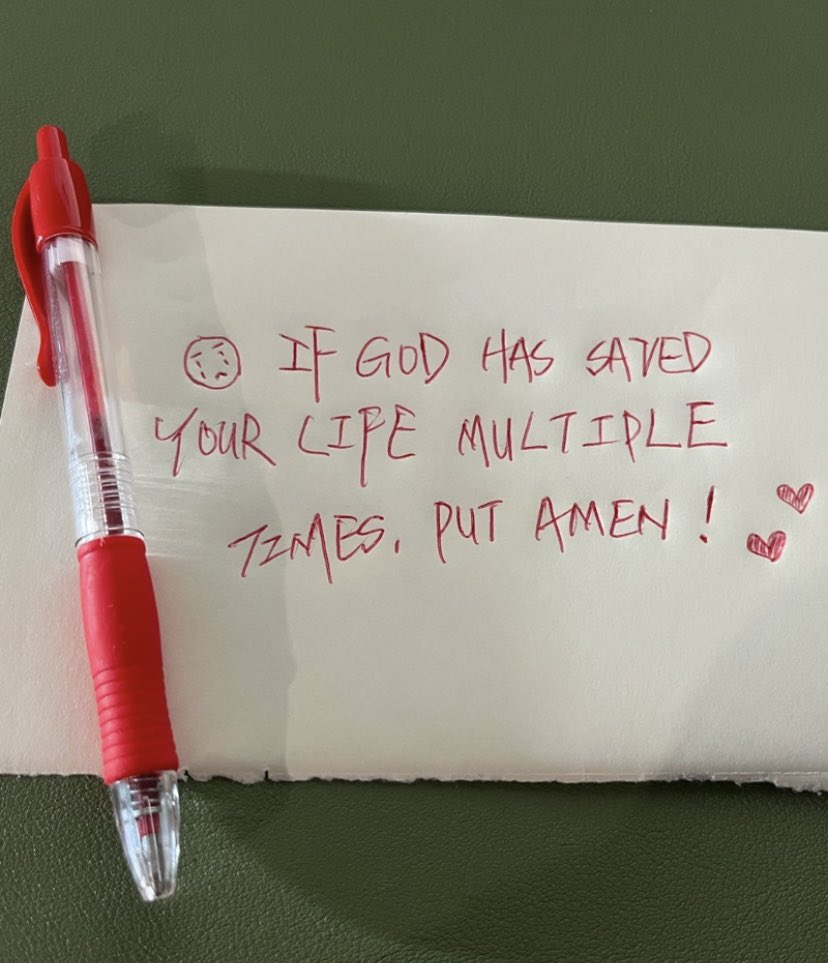 IF GOD HAS SAVED
YOUR LIFE MULTIPLE
TIMES, PUT AMEN!